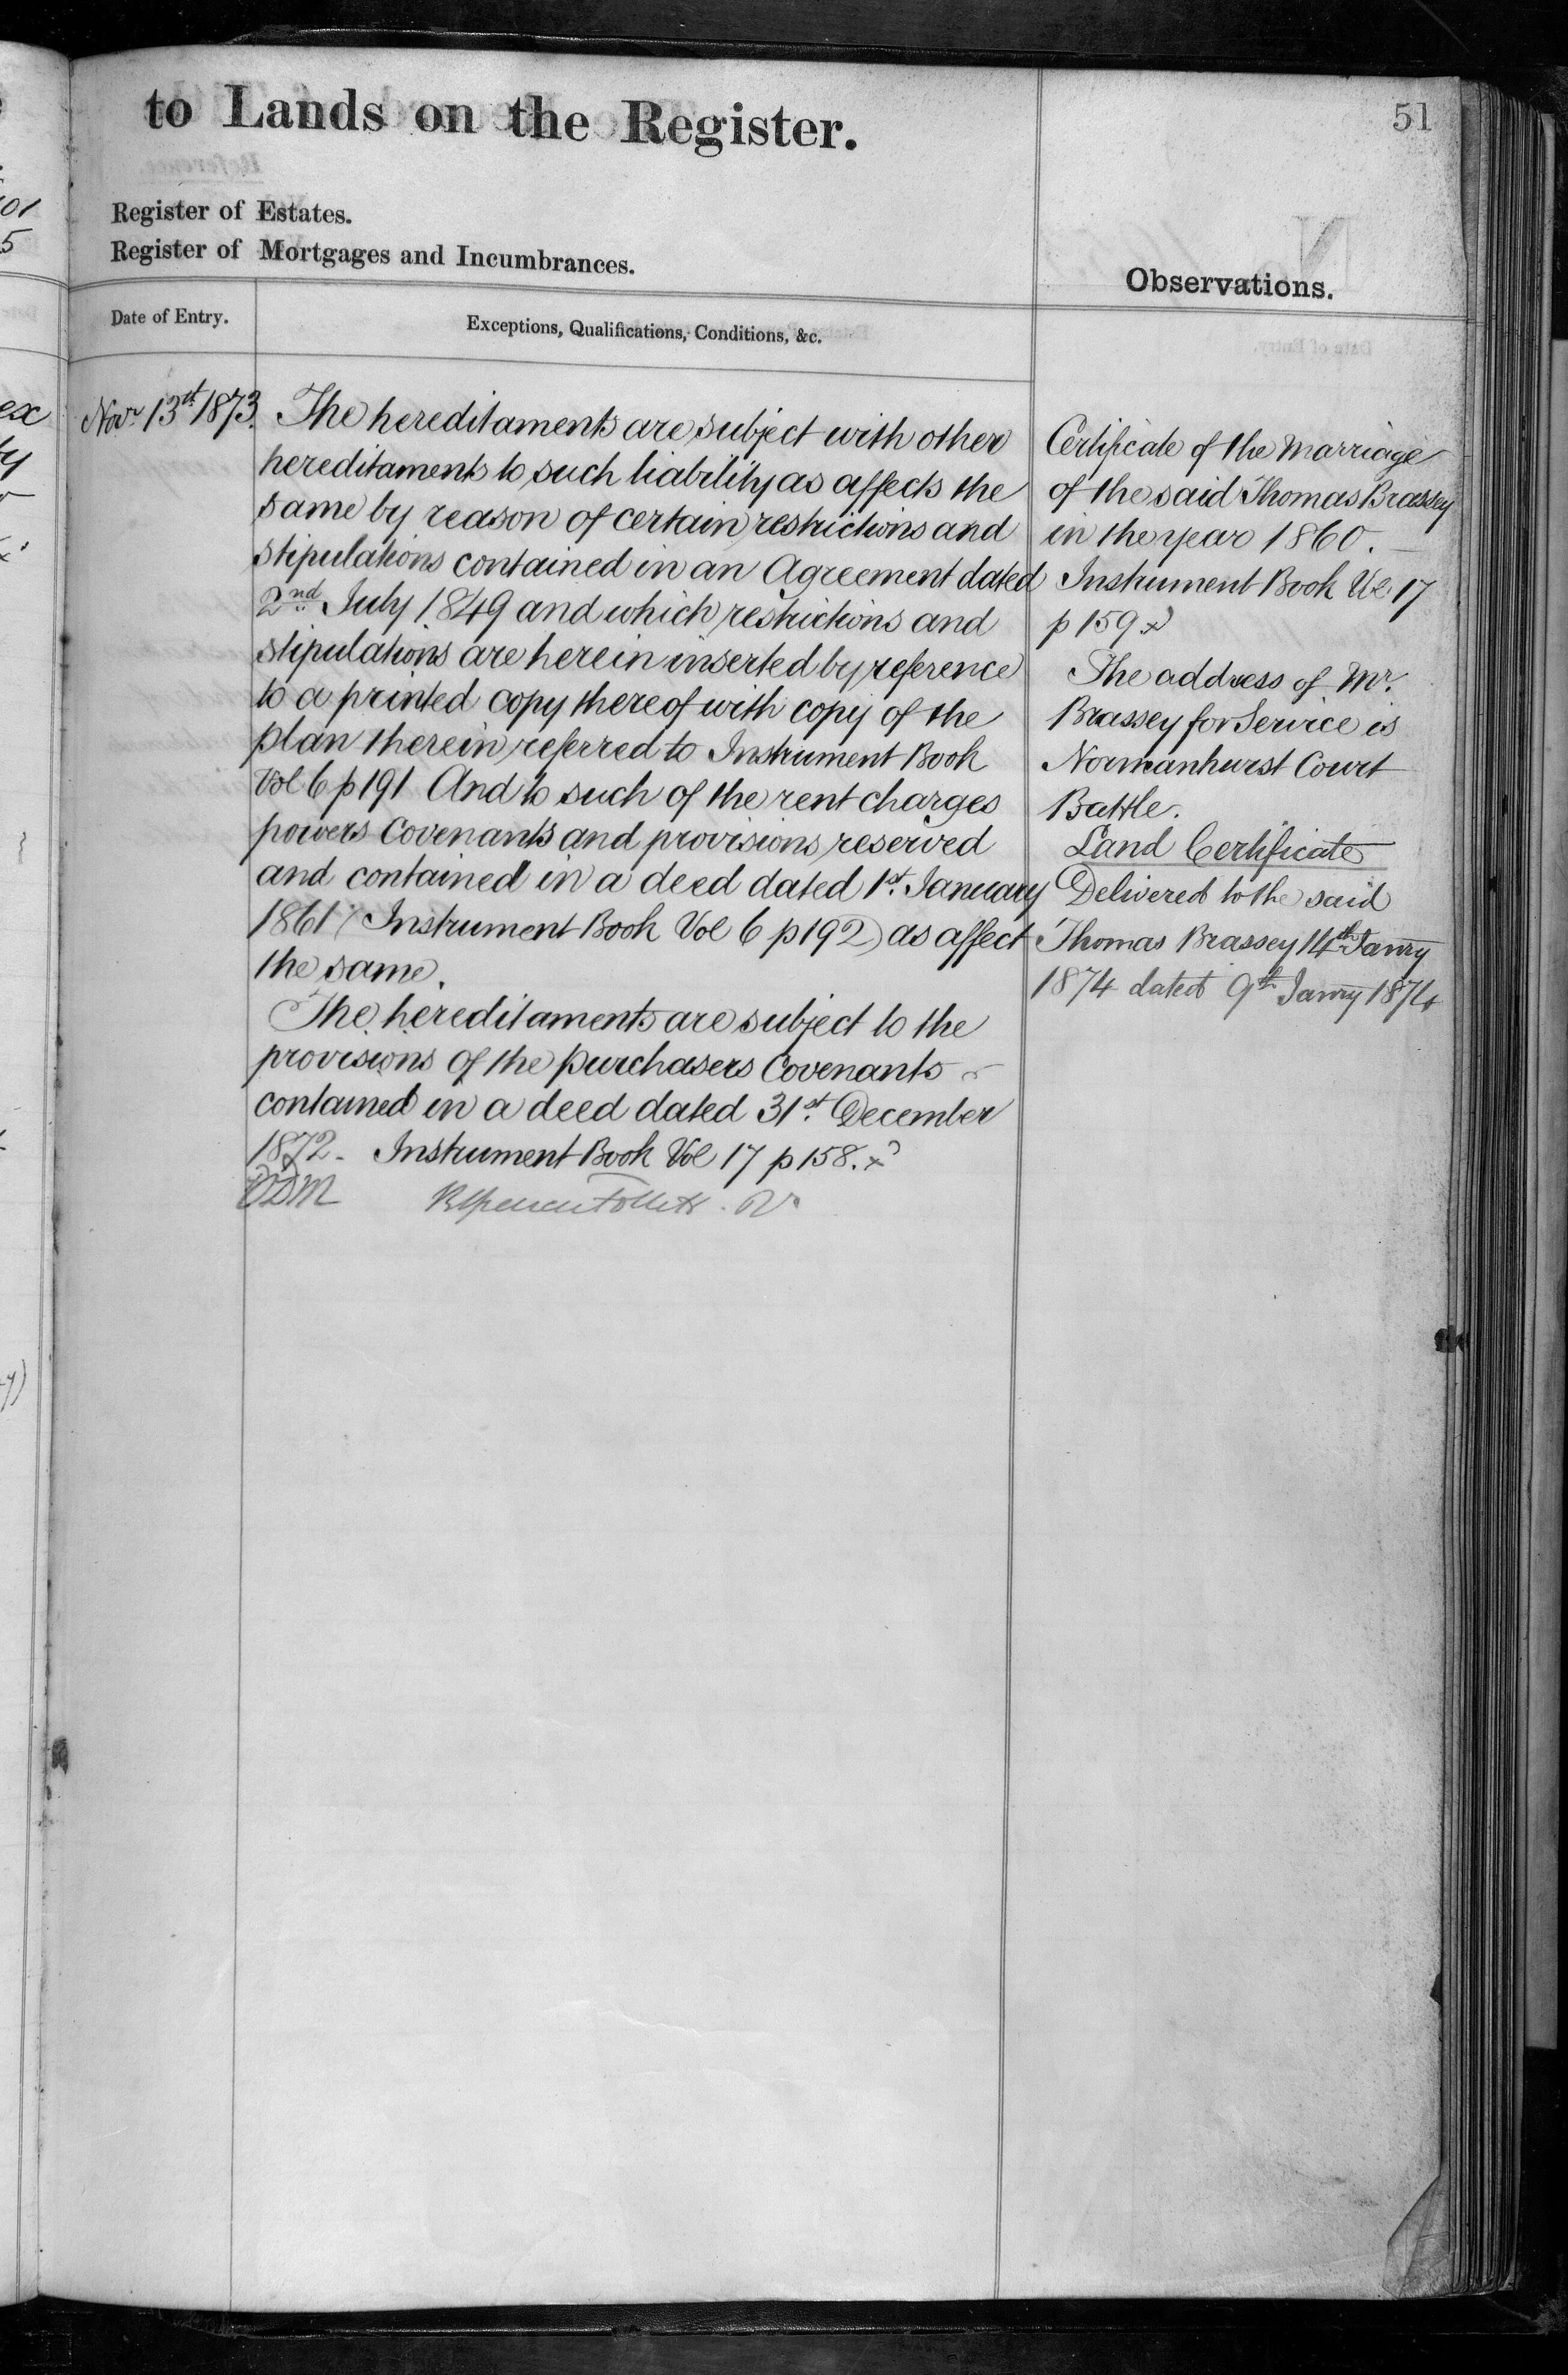 to Lands on the Register.
51
Register of Estates.
Register of Mortgages and Incumbrances.
Observations.
Date of Entry.
Exceptions, Qualifications, Conditions, &c.
Novr. 13th 1873.
The hereditaments are subject with other
hereditaments to such liability as affects the
same by reason of certain restrictions and
stipulations contained in an Agreement dated
2nd July 1849 and which restrictions and
stipulations are herein inserted by reference
to a printed copy thereof with copy of the
plan therein referred to Instrument Book
Vol 6 p 191 And to such of the rent charges
powers Covenants and provisions reserved
and contained in a deed dated 1st. January
1861 (Instrument Book Vol 6 p 192) as affect
the same.
The hereditaments are subject to the
provisions of the purchasers Covenants
contained in a deed dated 31st. December
1872. Instrument Book Vol 17 p 158.
Certificate of the Marriage
of the said Thomas Brassey
in the year 1860.
Instrument Book Vol 17
p 159
The address of Mr.
Brassey for Service is
Normanhurst Court
Battle.
Land Certificate
Delivered to the said
Thomas Brassey 14th Janry
1874 dated 9th Janry 1874
01
5
ex